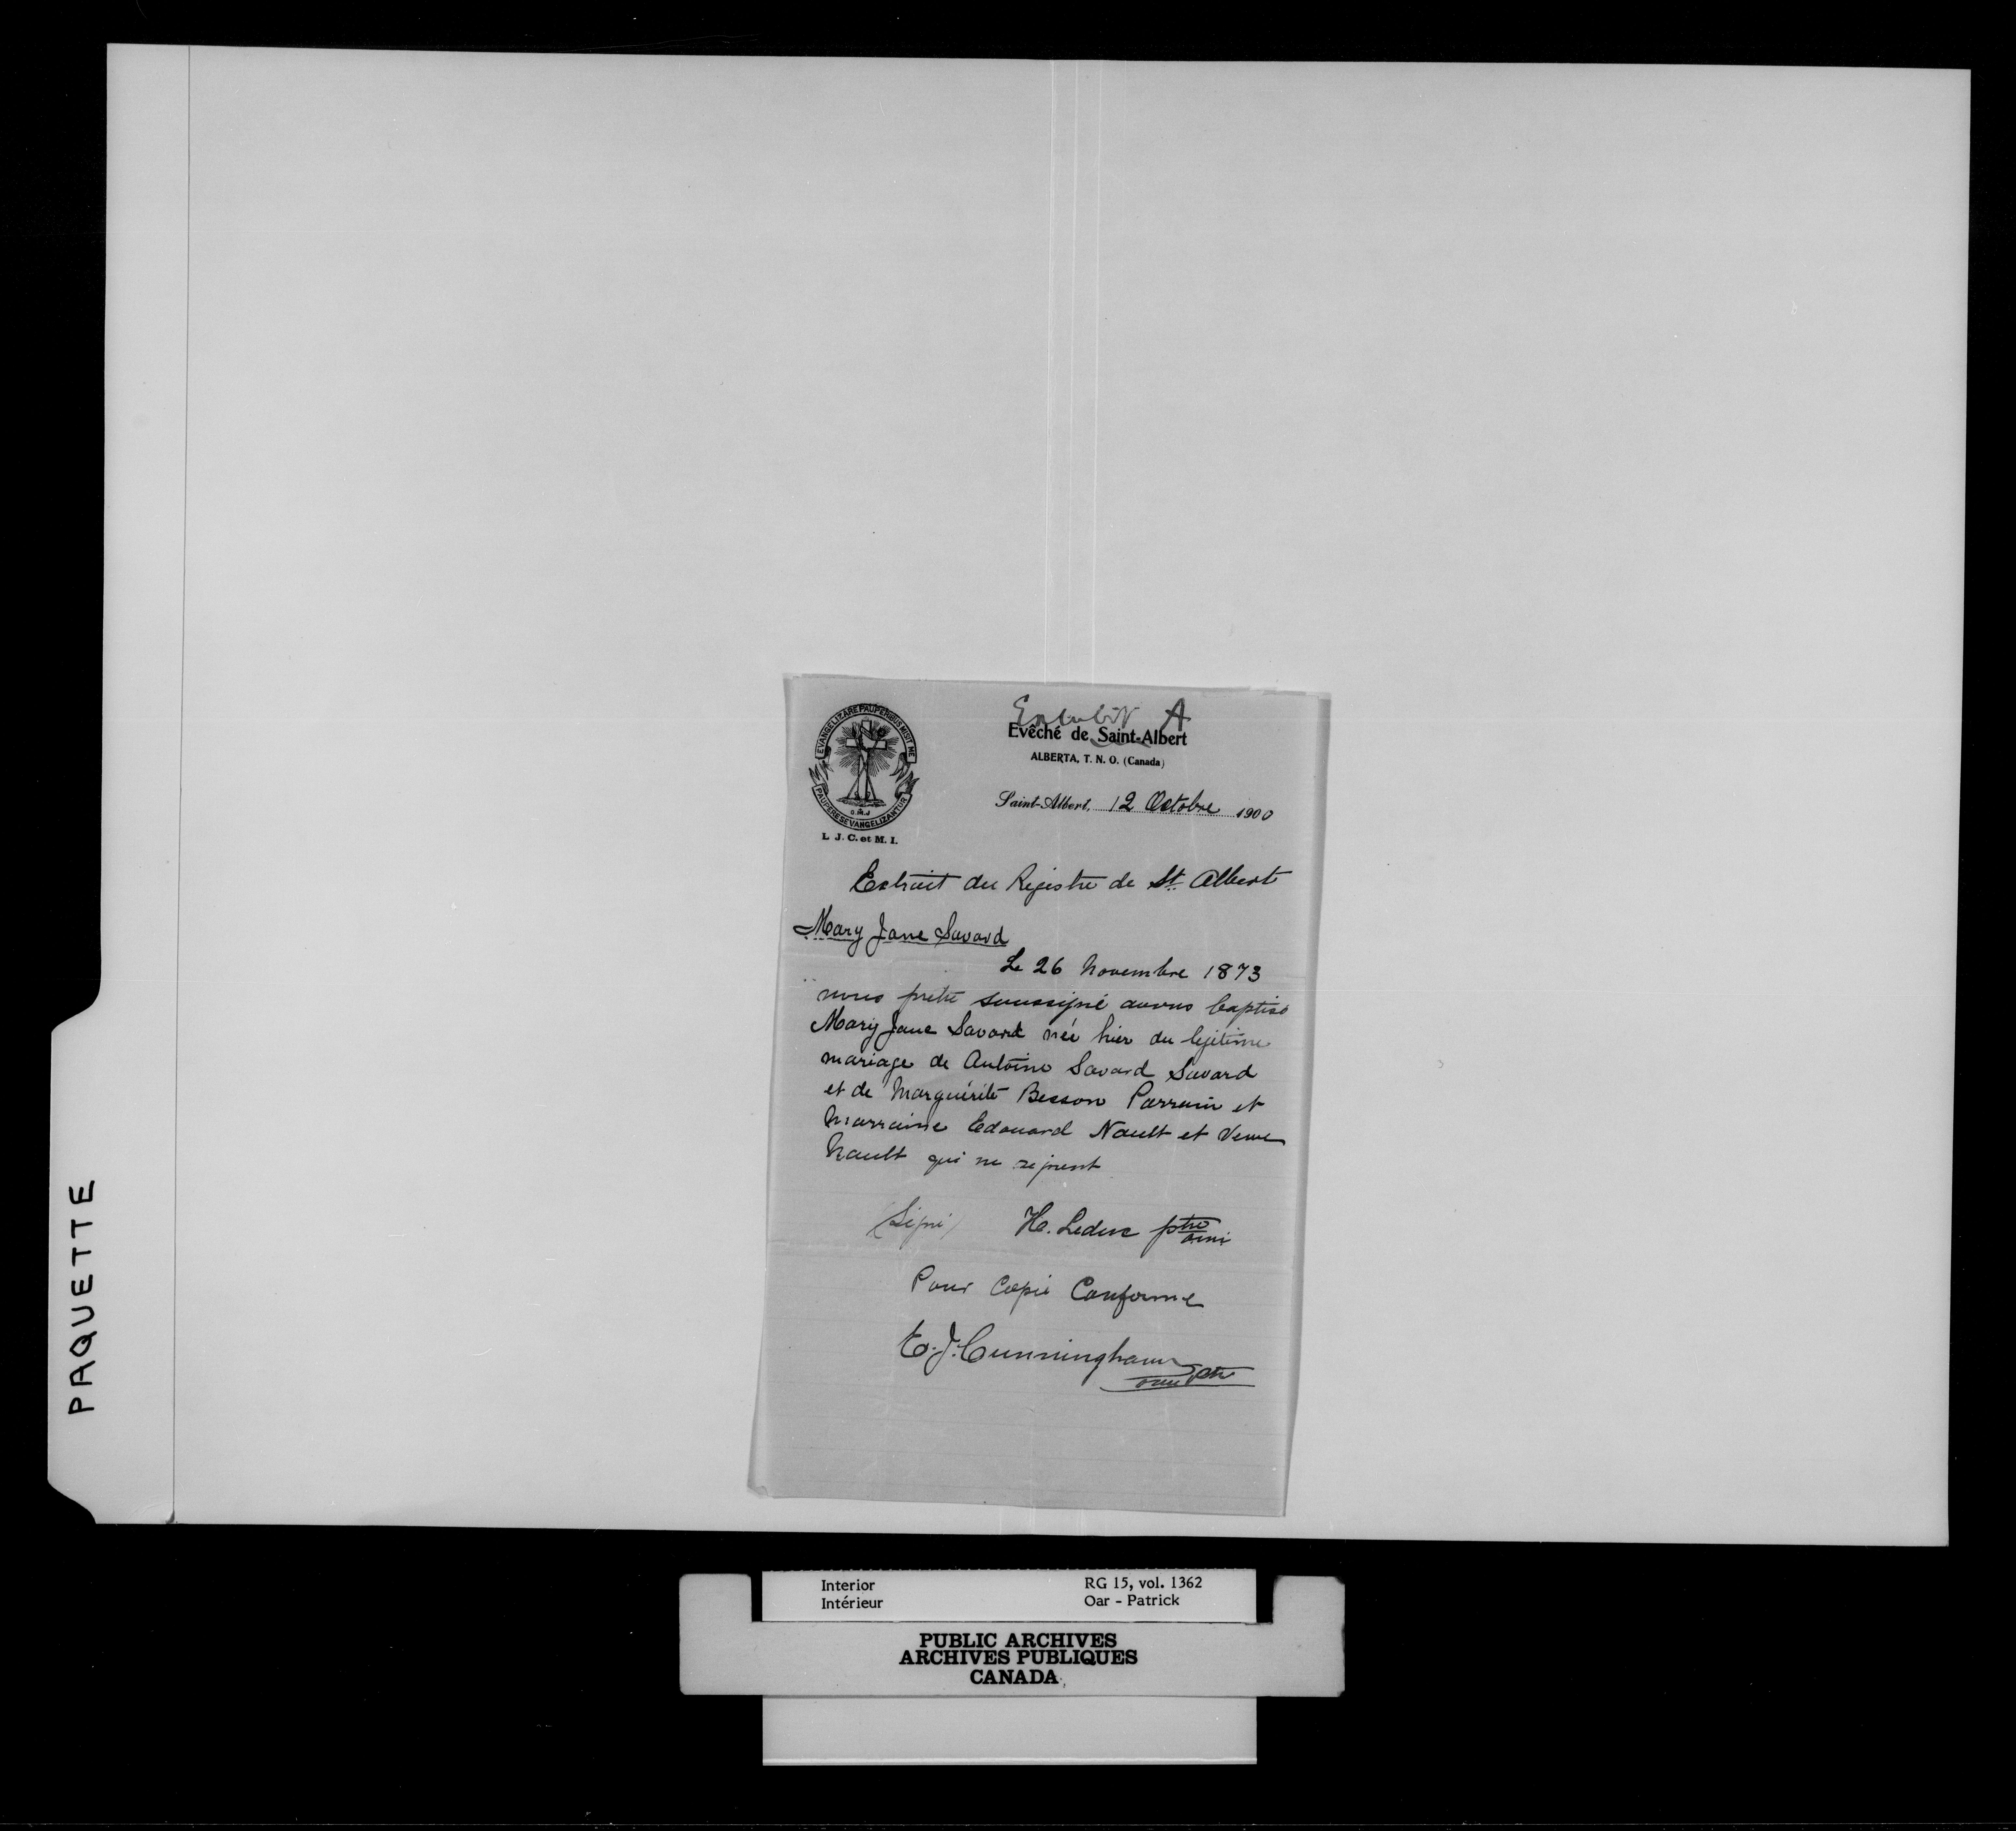 Exhibit A
EVANGELIZARE PAUPERIBUS MISIT ME
PAUPERES EVANGELIZANTUR
O.M.J
L. J. C. et M. I.
Evêché de Saint-Albert
ALBERTA, T. N. O. (Canada)
Saint-Albert, 12 Octobre 1900
Extrait du Registre de St. Albert
Mary Jane Savard
Le 26 Novembre 1873
nous prêtre soussigné avons baptisé
Mary Jane Savard née hier du légitime
mariage de Antoine Savard Savard
et de Marguérite Besson Parrain et
Marraine Edouard Nault et Veuve
Nault qui ne signent
(Signé) H. Leduc ptre omi
Pour Copie Conforme
E. J. Cunningham
omi ptr
PAQUETTE
Interior
Intérieur
RG 15, vol. 1362
Oar - Patrick
PUBLIC ARCHIVES
ARCHIVES PUBLIQUES
CANADA